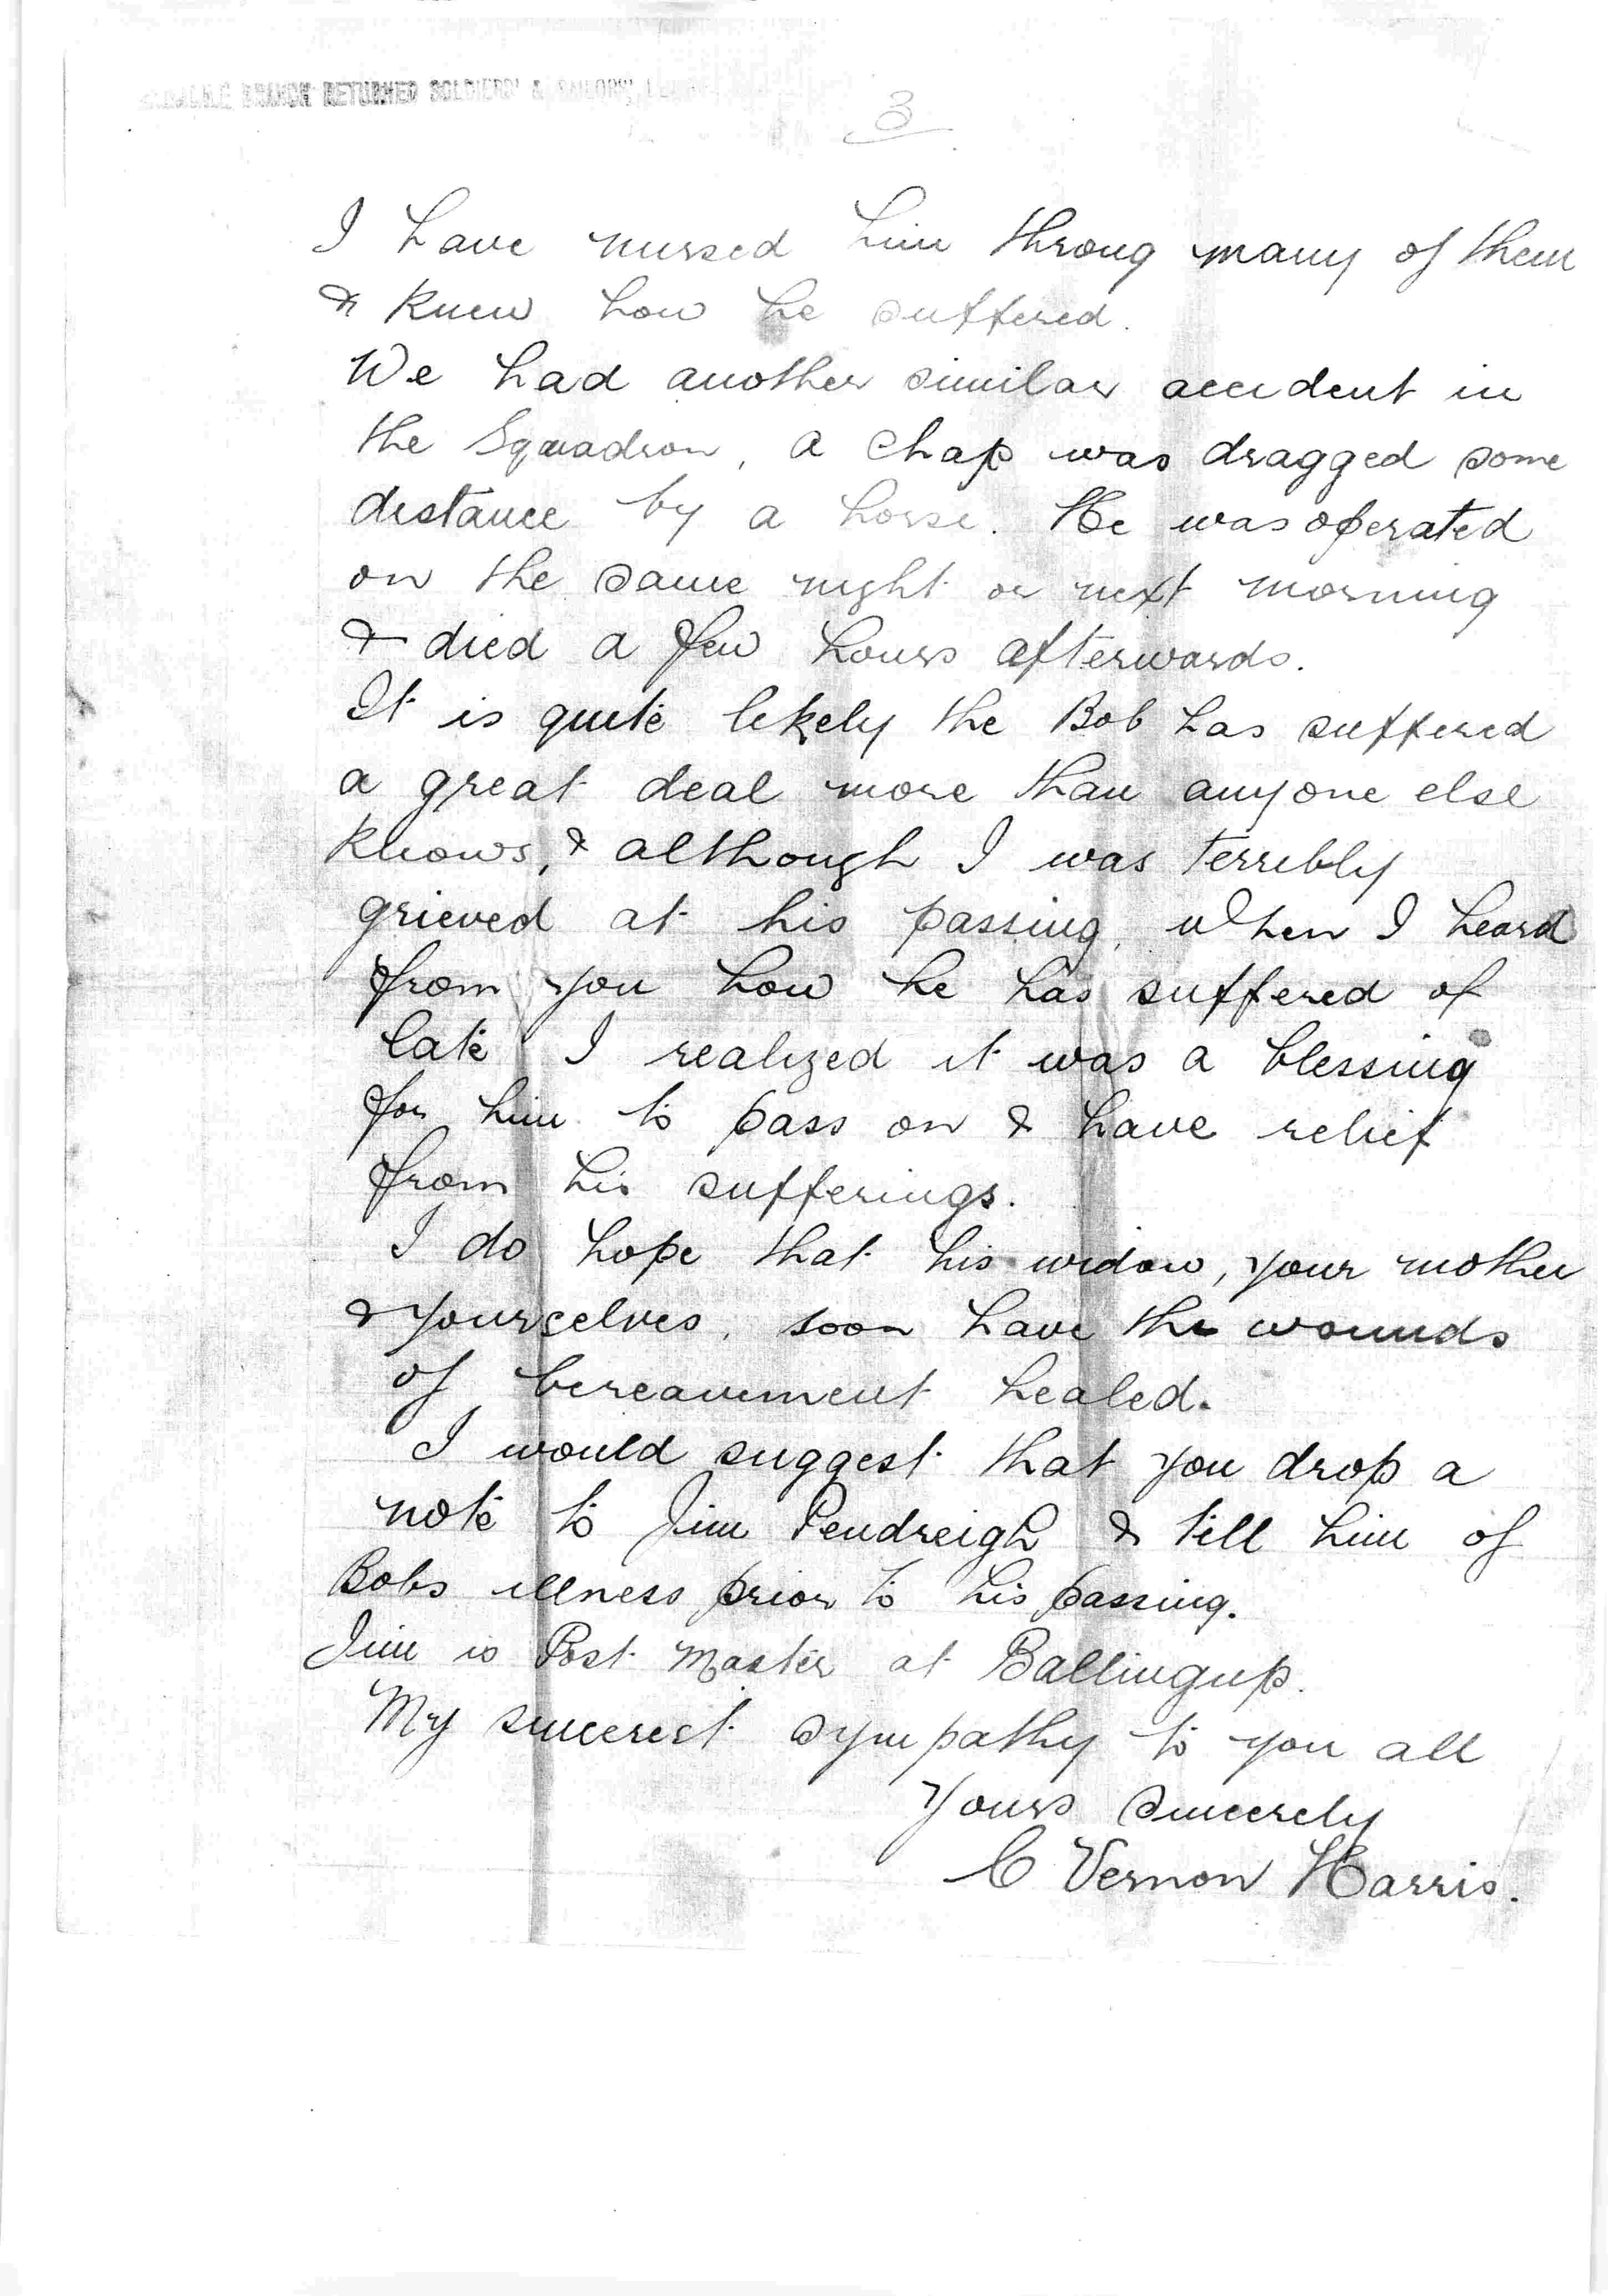 BRANCH RETURNED SOLDIERS' & SAILORS'
3
I have nursed him throug many of them
& knew how he suffered.
We had another similar accident in
the Squadron, a chap was dragged some
distance by a horse. He was operated
on the same night or next morning
& died a few hours afterwards.
It is quite likely the Bob has suffered
a great deal more than anyone else
knows, & although I was terribly
grieved at his passing, when I heard
from you how he has suffered of
late I realized it was a blessing
for him to pass on & have relief
from his sufferings.
I do hope that his widow, your mother
& yourselves, soon have the wounds
of bereavement healed.
I would suggest that you drop a
note to Jim Pendreigh & tell him of
Bobs illness prior to his passing.
Jim is Post Master at Ballingup.
My sincerest sympathy to you all
Yours sincerely
C Vernon Harris.